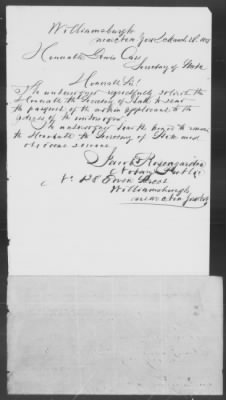 Williamsburgh
near New York March 28th 185
Honorable Lewis Cass
Secretary of State
Honorable Sir!
The undersigned respectfully solicits the
Honorable the Secretary of State to send
the passport of the within applicant to the
address of the undersigned.
The undersigned has the honor to remain
the Honorable the Secretary of State most
obedient servant
Jacob Rosengarden
Notary Public
Williamsburgh
near New York